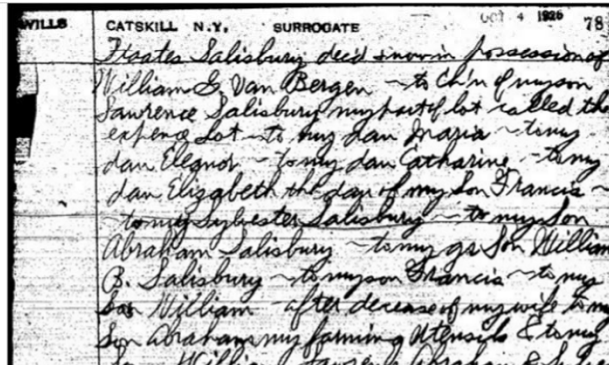 WILLS CATSKILL N.Y. SURROGATE OCT 4 1926 78
Staates Salisbury dec'd & now in possession of
William G Van Bergen - to ch'n of my son
Lawrence Salisbury my part of lot called the
expence lot - to my dau Maria - to my
dau Eleanor - to my dau Catharine - to my
dau Elizabeth the dau of my son Francis -
- to my Sylvester Salisbury - to my son
Abraham Salisbury - to my gr son William
B. Salisbury - to my son Francis - to my
son William - after decease of my wife to my
son Abraham my farming utensils & to my
William Lawrence Abraham &